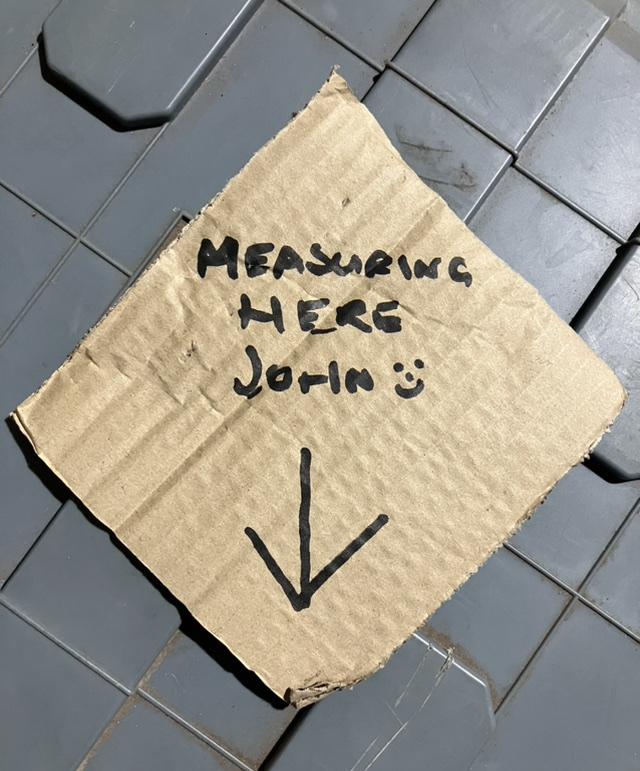 MEASURING
HERE
JOHN